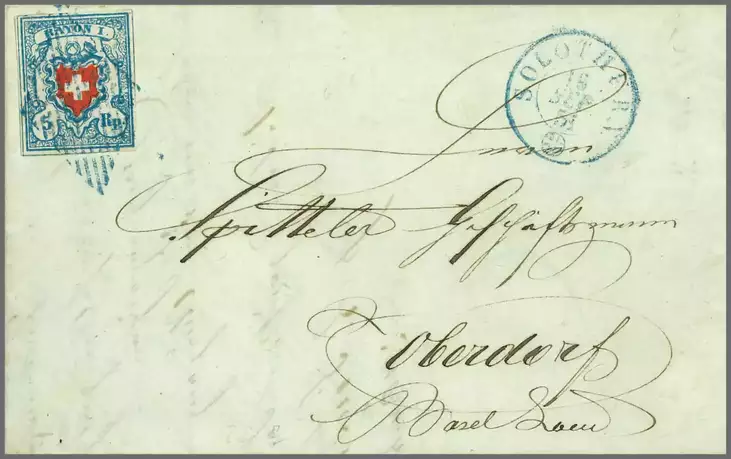 RAYON I.
5 Rp.
SOLOTHURN
Herrn
Spitteler Geschäftsmann
Oberdorf
Basel Land